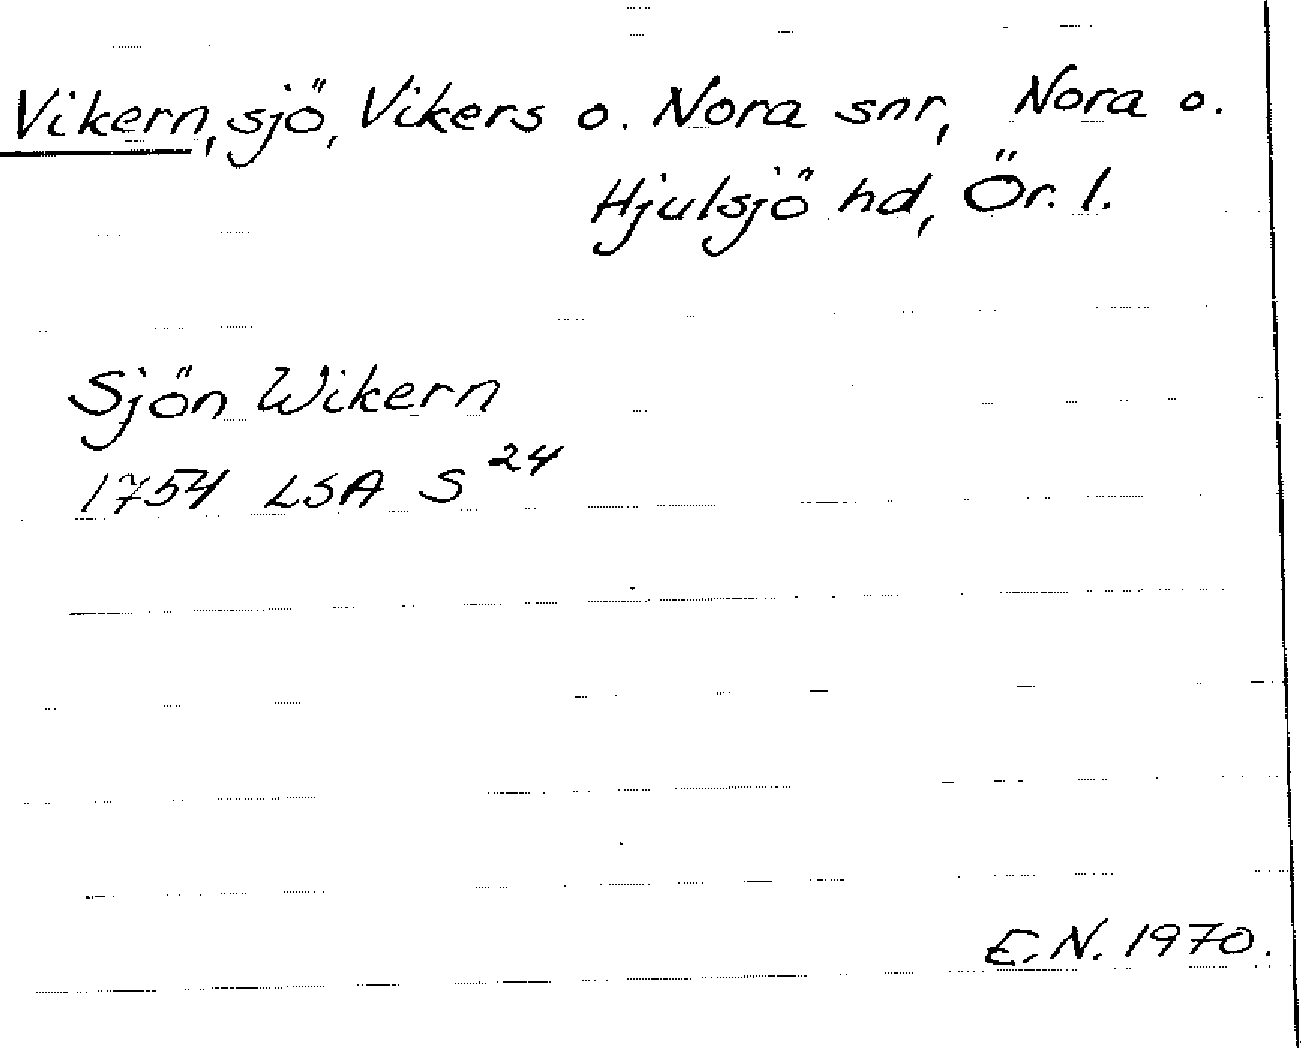 Vikern, sjö, Vikers o. Nora snr, Nora o.
Hjulsjö hd, Ör. l.
Sjön Wikern
1754 LSA S 24
E.N. 1970.